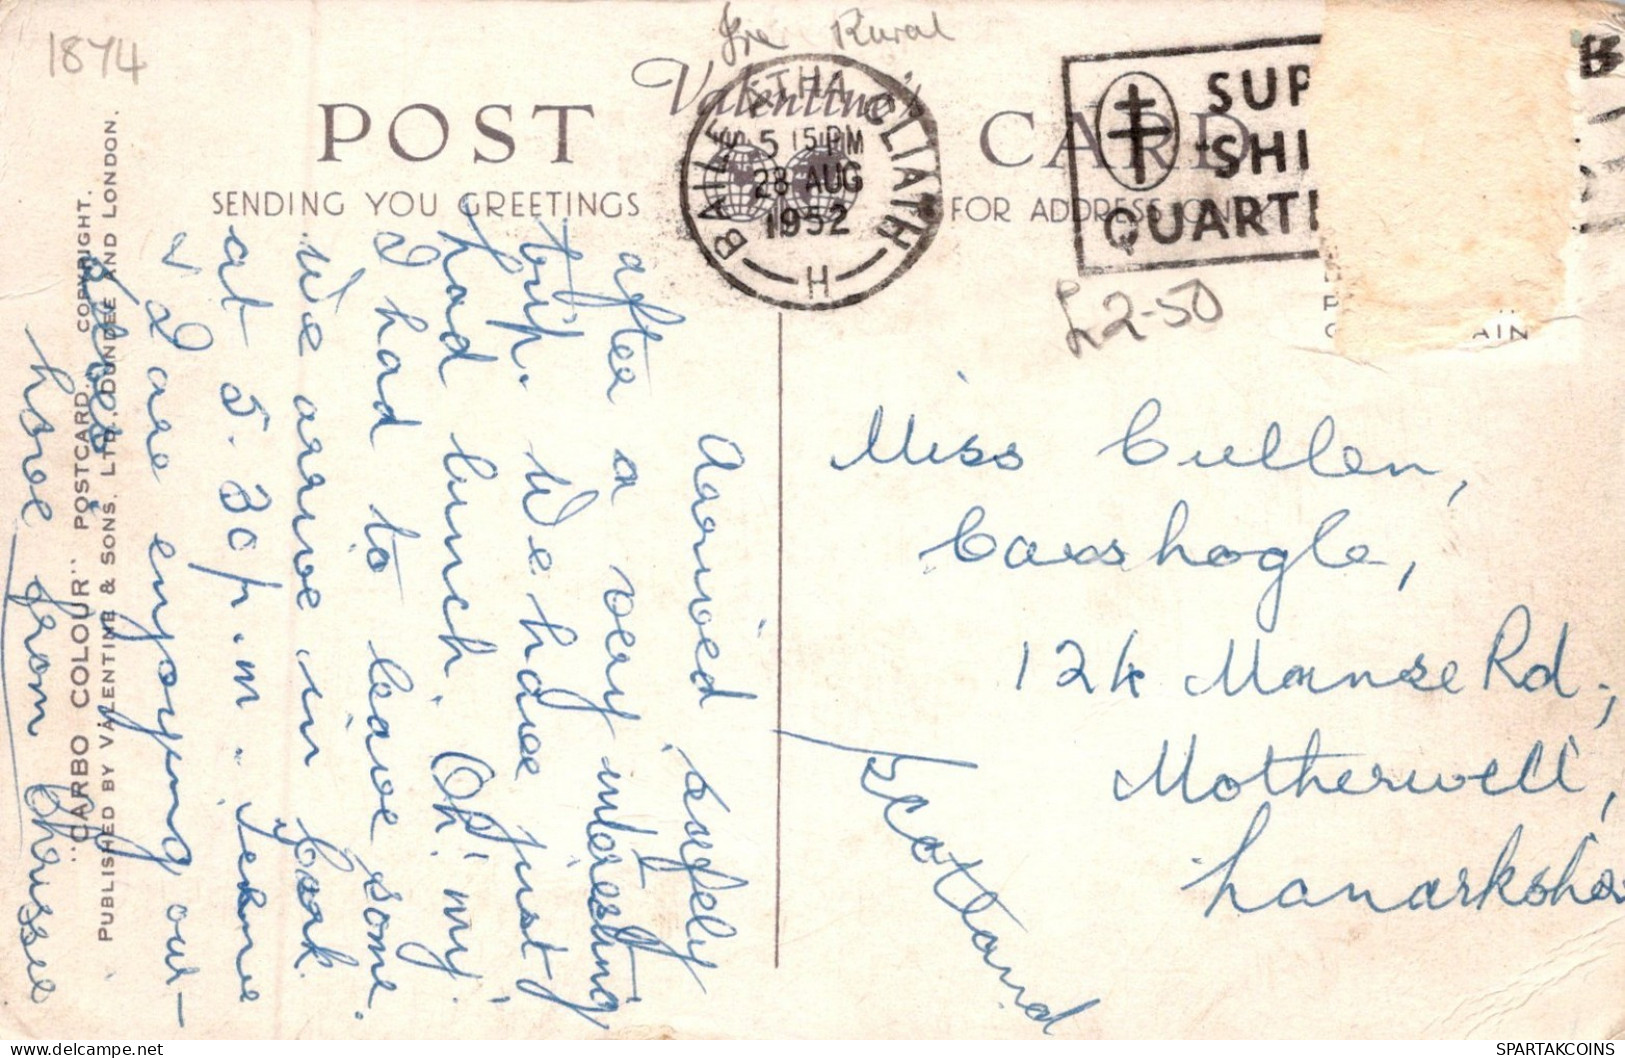 1874
Ire Rural
Valentine's
POST CARD
SENDING YOU GREETINGS
FOR ADDRESS ONLY
BAILE ÁTHA CLIATH
5 15 PM
28 AUG
1952
H
SUP
SHI
QUARTE
£2-50
AIN
Arrived safely
after a very interesting
trip. We have just
had lunch. Oh! my!
I had to leave some.
We arrive in Cork
at 5.30 p.m. Irene
& I are enjoying our-
selves
here from Chrissie
Miss Cullen,
12k Manse Rd.,
Motherwell,
Lanarkshire
Scotland
"CARBO COLOUR" POSTCARD. COPYRIGHT.
PUBLISHED BY VALENTINE & SONS, LTD., DUNDEE AND LONDON.
SPARTAKCOINS